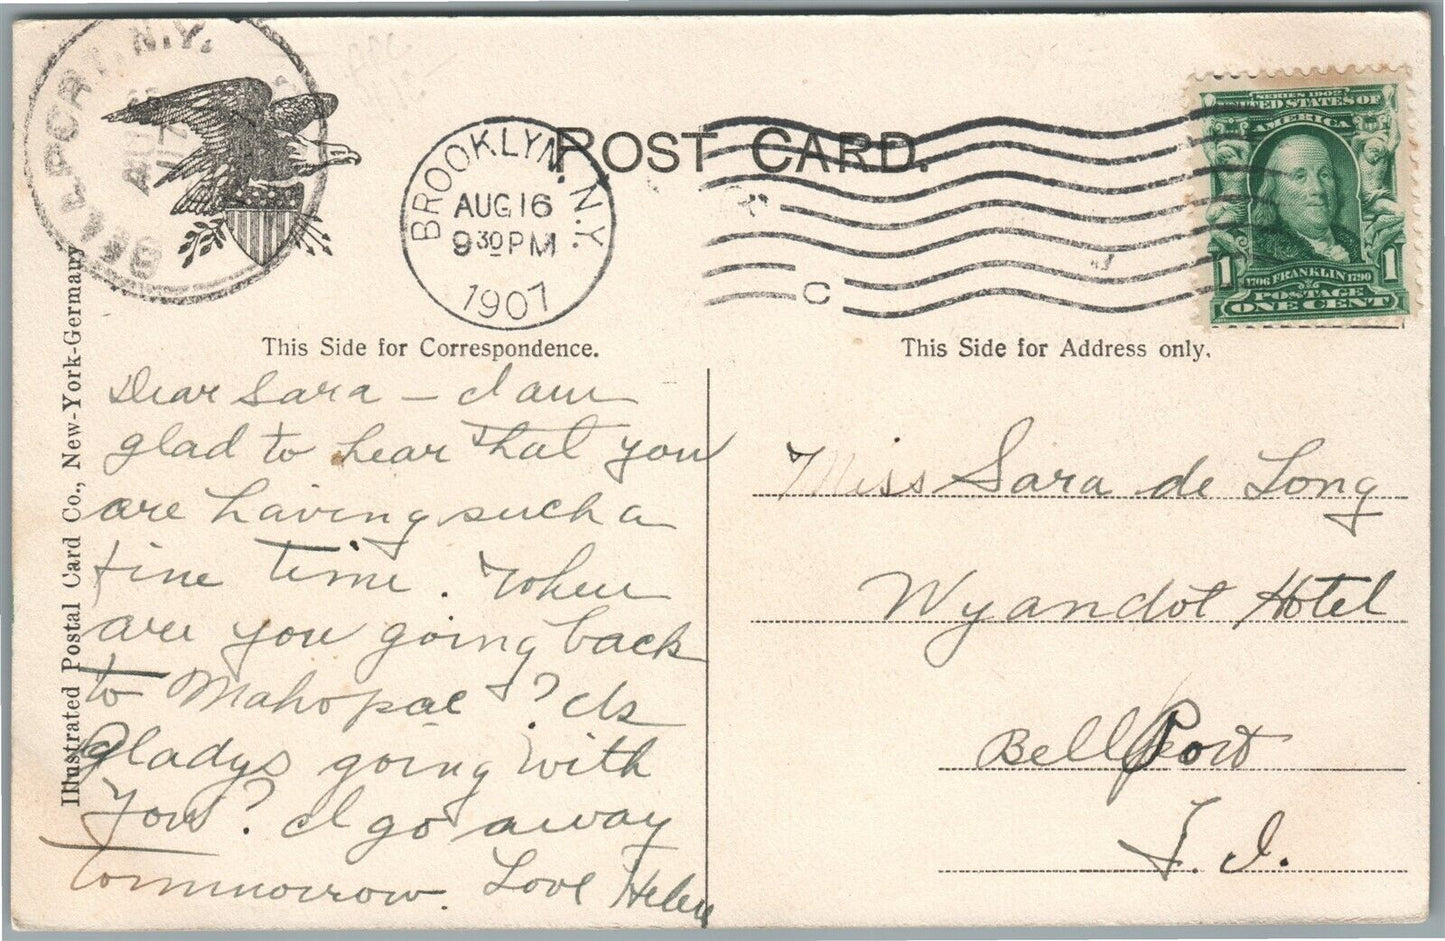 BELLPORT, N.Y.
AUG
17
BROOKLYN, N.Y.
AUG 16
9 30 PM
1907
POST CARD.
C
SERIES 1902
UNITED STATES OF
AMERICA
1706 FRANKLIN 1790
POSTAGE
1 1
ONE CENT
This Side for Correspondence.
This Side for Address only.
Illustrated Postal Card Co., New-York-Germany
Dear Sara — I am
glad to hear that you
are having such a
fine time. When
are you going back
to Mahopac? Is
Gladys going with
You? I go away
tommorrow. Love Helen
Miss Sara de Long
Wyandot Hotel
BellPort
L. I.